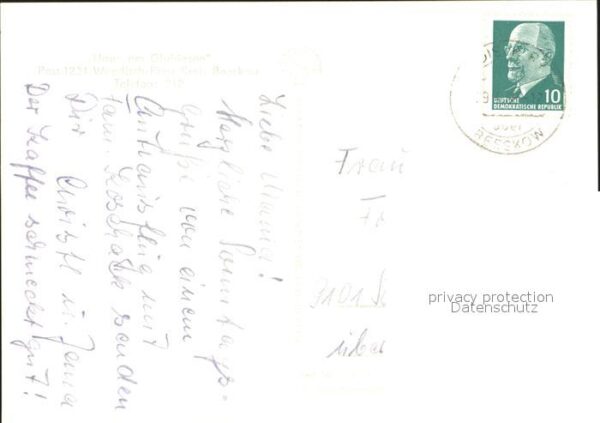 "Haus am Glubigsee"
Post 1231 Wendisch-Rietz Kreis Beeskow
Telefon 212
Liebe Mama!
Herzliche Sonntags-
grüße von einem
Autoausflug mit
Fam. Koschack senden
Dir Christl u. Jana
Der Kaffee schmeckt gut!
10
DEUTSCHE
DEMOKRATISCHE REPUBLIK
über
BEESKOW
Frau
9101
über
privacy protection
Datenschutz